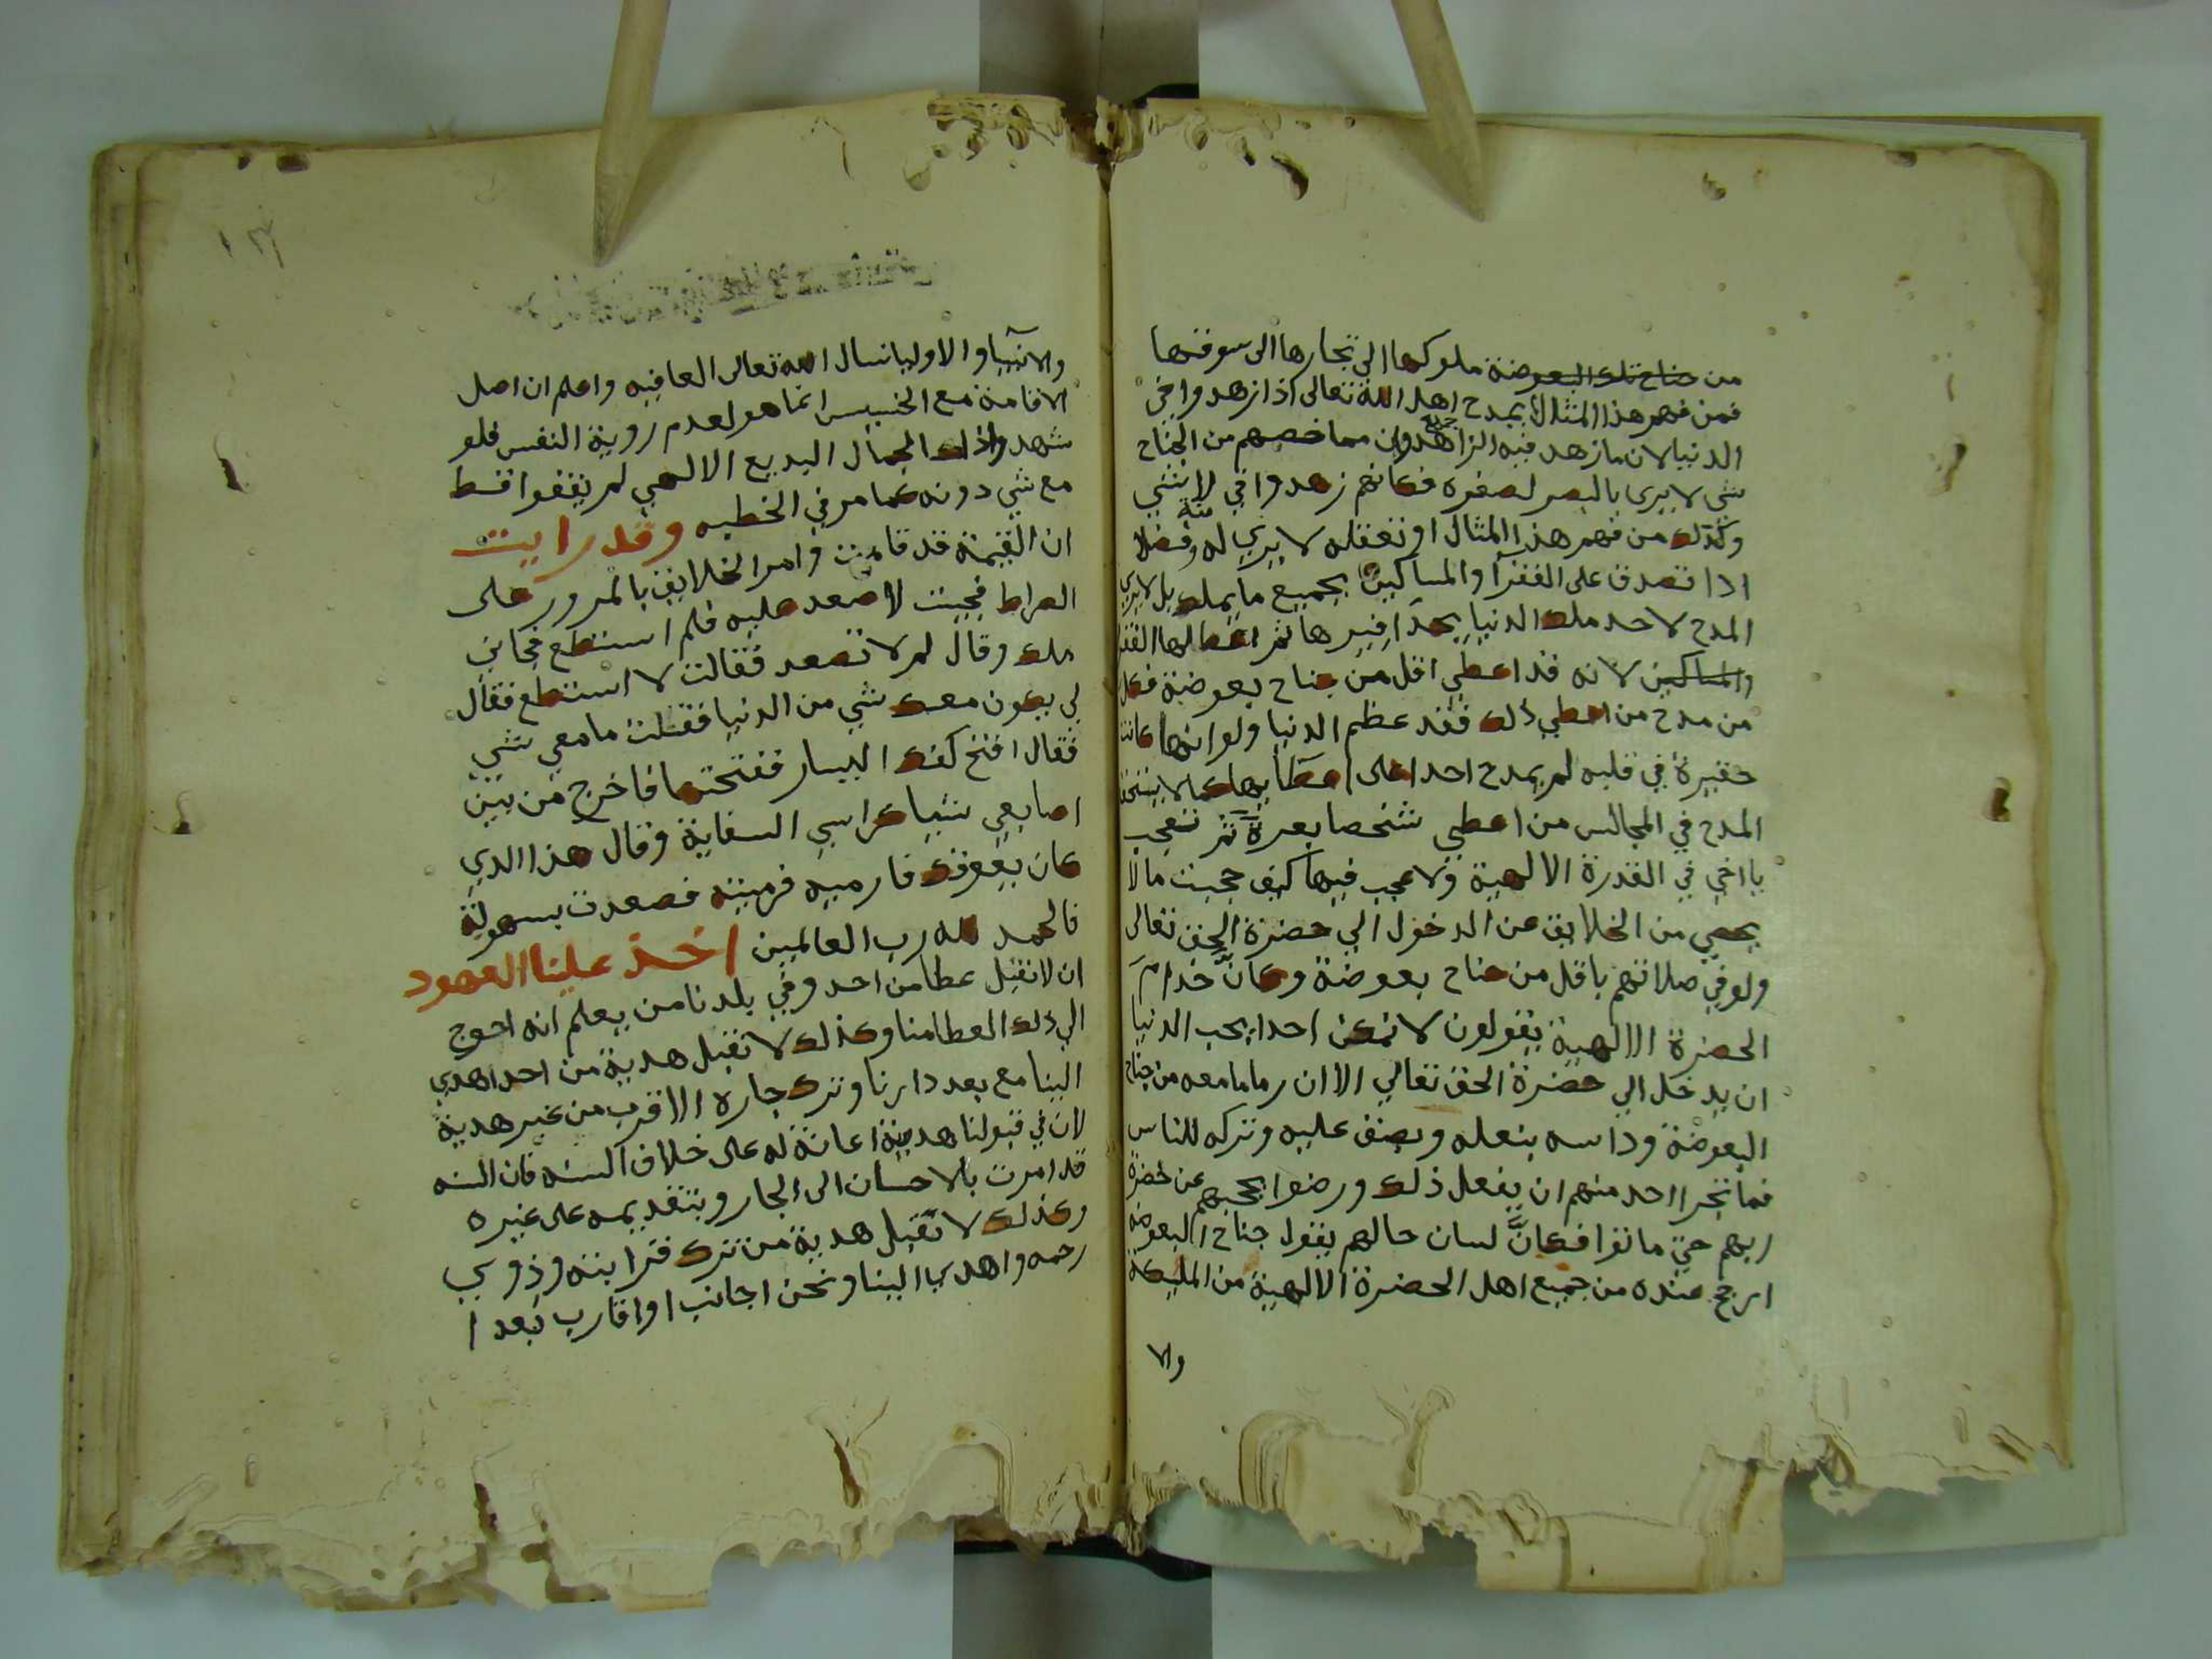 من جناح تلك البعوضة ملوكها الى تجارها الى سوقتها
فمن فهم هذا المثال لا يمدح اهل الله تعالى اذا زهدوا في
الدنيا لان ما زهد فيه الزاهدون مما خصهم من الجناح
شي لا يرى بالبصر لصغره فكانهم زهدوا في لا شي
وكذلك من فهم هذا المثال او تعقله لا يري له منة وفضلا
اذا تصدق على الفقرآ والمساكين بجميع ما يملك بل لا يري
المدح لاحد ملك الدنيا بحذافيرها ثم اعطالها الفقرا
والمساكين لانه قد اعطي اقل من جناح بعوضة فكل
من مدح من اعطي ذلك فقد عظم الدنيا ولو انها كانت
حقيرة في قلبه لم يمدح احدا على اعطايها كما لا يستحق
المدح في المجالس من اعطي شخصا بعرة ثم تتعجب
يا اخي في القدرة الالهية ولا عجب فيها كيف حجبت مالا
يحصي من الخلايق عن الدخول الي حضرة الحق تعالى
ولو في صلاتهم باقل من جناح بعوضة وكانّ خدام
الحضرة الالهية يقولون لا نمكن احدا يحب الدنيا
ان يدخل الي حضرة الحق تعالي الا ان رما ما معه من جناح
البعوضة وداسه بنعله وبصق عليه وتركه للناس
فما تجرا احد منهم ان يفعل ذلك ورضوا بحجبهم عن حضرة
ربهم حتي ماتوا فكانَّ لسان حالهم يقول جناح البعوضه
ارجح عنده من جميع اهل الحضرة الالهية من المليكة
والا
والانبيا والاوليا نسال الله تعالى العافيه واعلم ان اصل
الاقامة مع الخسيس انما هو لعدم روية النفس فلو
شهدوا ذلك الجمال البديع الالهي لم يقفوا قط
مع شي دونه كما مر في الخطبه وقد رايت
ان القيمة قد قامت وامر الخلايق بالمرور على
الصراط فجيت لاصعد عليه فلم استطع فجاني
ملك وقال لم لا تصعد فقالت لا استطع فقال
لي يكون معك شي من الدنيا فقلت ما معي شي
فقال افتح كفك اليسار ففتحتها فاخرج من بين
اصابعي شيا كراسي السفاية وقال هذا الدي
كان يعوقك فارميه فرميته فصعدت بسهولة
فالحمد لله رب العالمين اخذ علينا العهود
ان لا نقبل عطا من احد وفي بلدنا من يعلم انه احوج
الي ذلك العطا منا وكذلك لا نقبل هدية من احد اهدي
الينا مع بعد دارنا وترك جاره الاقرب من غير هدية
لان في قبولنا هديته اعانة له على خلاف السنه فان السنه
قد امرت بالاحسان الى الجار وبتقديمه على غيره
وكذلك لا نقبل هدية من ترك قرابته وذوي
رحمه واهدي الينا ونحن اجانب او اقارب بعدا